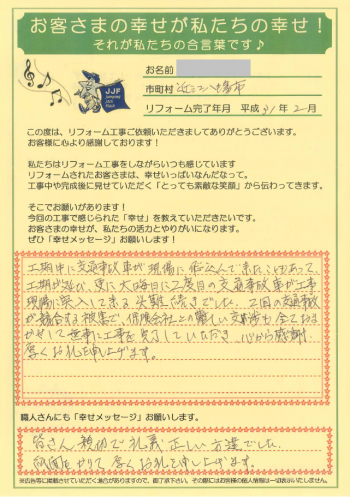 お客さまの幸せが私たちの幸せ！
それが私たちの合言葉です♪
JJF
お名前
市町村 近江八幡市
リフォーム完了年月 平成 31年 2月
この度は、リフォーム工事ご依頼いただきましてありがとうございます。
お客様に心より感謝しております！
私たちはリフォーム工事をしながらいつも感じています
リフォームされたお客さまは、幸せいっぱいなんだなって。
工事中や完成後に見せていただく「とっても素敵な笑顔」から伝わってきます。
そこでお願いがあります！
今回の工事で感じられた「幸せ」を教えていただきたいです。
お客さまの幸せが、私たちの活力とやりがいになります。
ぜひ「幸せメッセージ」お願いします！
工期中に交通事故車が現場に飛込んで来たこともあって、
工期が延び、更に大晦日に2度目の交通事故車が工事
現場に突入して来る災難続きでした。2回の交通事故
が競合する被害で、保険会社との難しい交渉も全てお
まかせして無事に工事を完了していただき、心から感謝
厚くお礼を申し上げます。
職人さんにも「幸せメッセージ」お願いします。
皆さん親切で礼義正しい方達でした。
紙面をかりて厚くお礼を申し上げます。
※広告等に掲載させていただく場合がありますので、ご了承下さい。その際にはお客様の個人情報は一切表示いたしません。